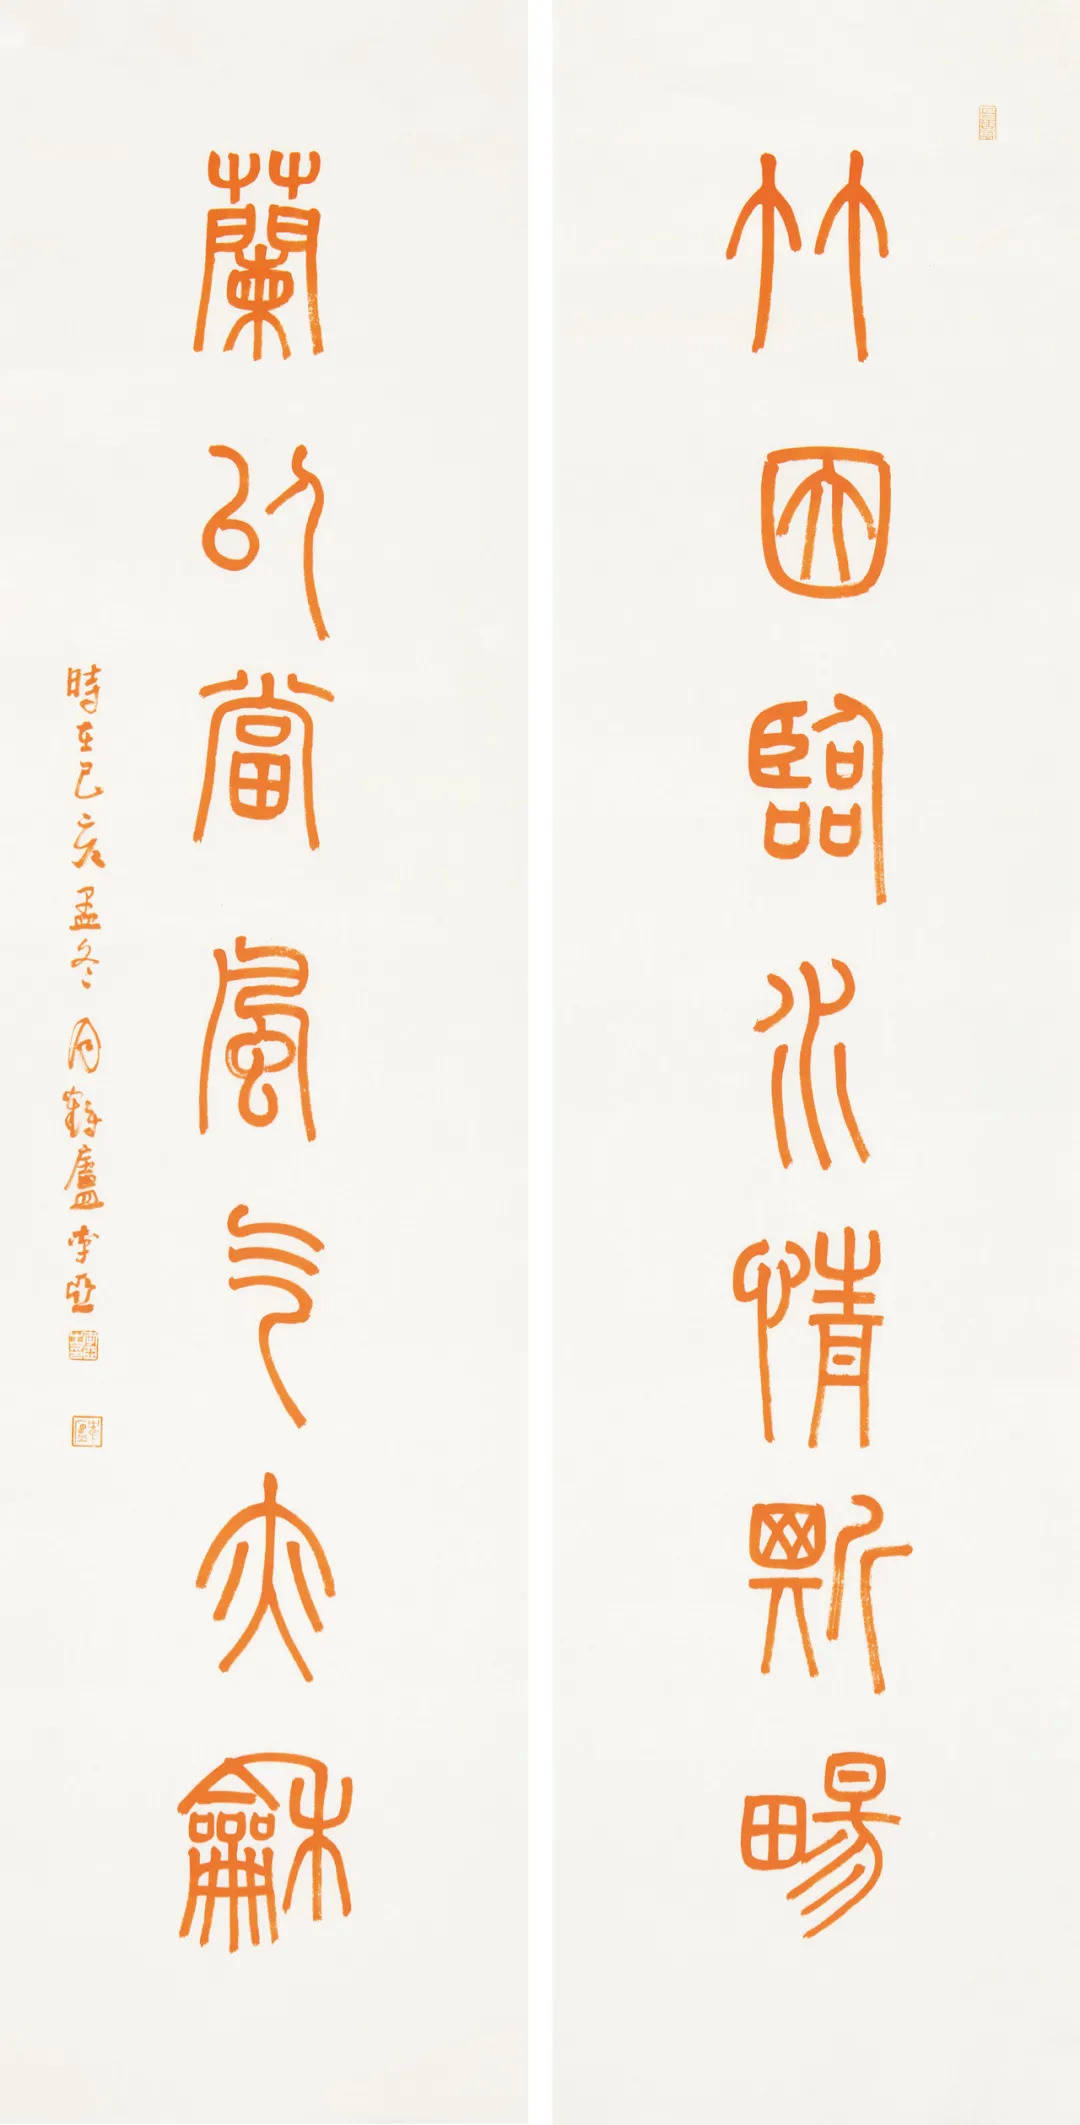 竹因臨水情斯暢
蘭以當風气亦龢
時在己亥孟冬月鶴廬李亞